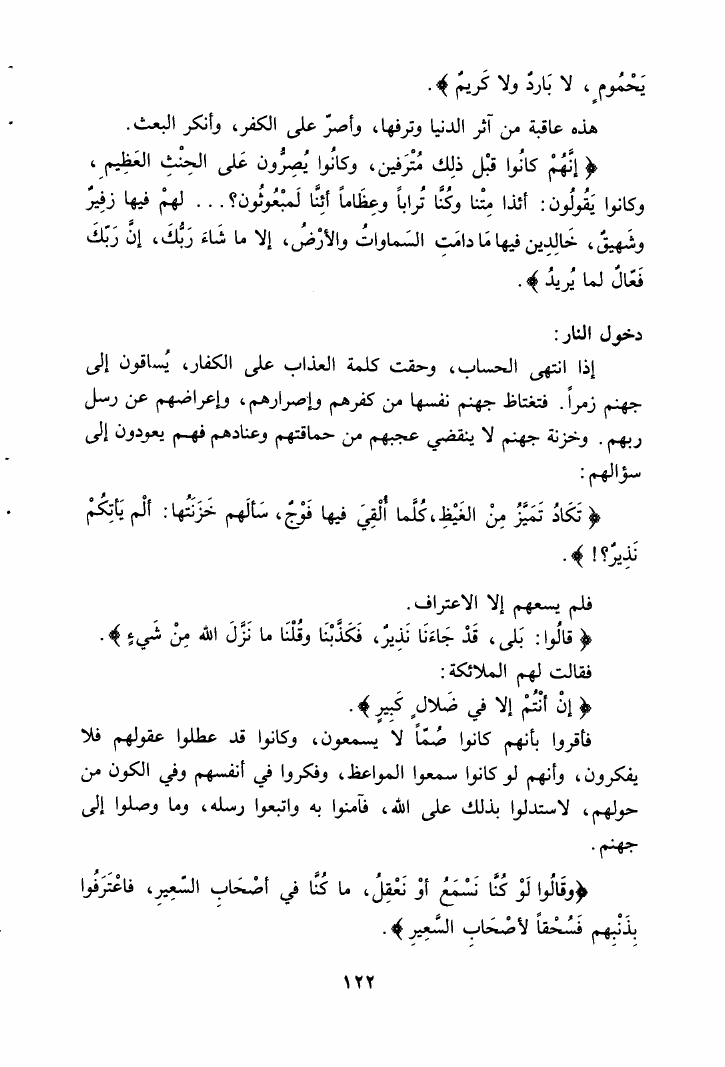 يَحْمُومٍ، لا بَاردٌ ولا كَريمٌ ﴾.
هذه عاقبة من آثر الدنيا وترفها، وأصرّ على الكفر، وأنكر البعث.
﴿ إنَّهُمْ كانُوا قبْل ذلِك مُتْرَفين، وكانُوا يُصِرُّون عَلى الحِنْثِ العَظِيمِ،
وكانوا يَقُولُون: أئذا مِتْنا وكُنَّا تُراباً وعِظَاماً أئِنَّا لَمبْعُوثُون؟... لهمْ فيها زفِيرٌ
وشَهيقٌ، خَالِدِين فيها مَا دامَتِ السَماواتُ والأرْضُ، إلا ما شَاءَ رَبُّكَ، إنَّ رَبّكَ
فَعّالٌ لما يُريدُ ﴾.
دخول النار:
إذا انتهى الحساب، وحقت كلمة العذاب على الكفار، يُساقون إلى
جهنم زمراً. فتغتاظ جهنم نفسها من كفرهم وإصرارهم، وإعراضهم عن رسل
ربهم. وخزنة جهنم لا ينقضي عجبهم من حماقتهم وعنادهم فهم يعودون إلى
سؤالهم:
﴿ تَكَادُ تَمَيَّزُ مِنْ الغَيْظِ، كُلَّما أُلْقِيَ فيها فَوْجٌ، سَألَهم خَزَنَتُها: ألْم يَأتِكُمْ
نَذِيرٌ؟! ﴾.
فلم يسعهم إلا الاعتراف.
﴿ قالُوا: بَلى، قَدْ جَاءَنَا نَذِيرٌ، فَكَذَّبْنَا وقُلْنَا ما نَزَّلَ الله مِنْ شَيءٍ ﴾.
فقالت لهم الملائكة:
﴿ إنْ أنْتُمْ إلا في ضَلالٍ كَبِيرٍ ﴾.
فأقروا بأنهم كانوا صُمّاً لا يسمعون، وكانوا قد عطلوا عقولهم فلا
يفكرون، وأنهم لو كانوا سمعوا المواعظ، وفكروا في أنفسهم وفي الكون من
حولهم، لاستدلوا بذلك على الله، فآمنوا به واتبعوا رسله، وما وصلوا إلى
جهنم.
﴿وقَالُوا لَوْ كُنَّا نَسْمَعُ أوْ نَعْقِلُ، ما كُنَّا في أصْحَابِ السّعِيرِ، فاعْتَرفُوا
بِذَنْبِهم فَسُحْقاً لأصْحَابِ السَّعِيرِ ﴾.
١٢٢